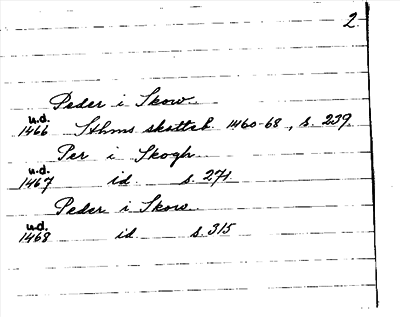 2
Peder i Skow
u.d.
1466 Sthms skotteb. 1460-68, s. 239
Per i Skogh
u.d.
1467 id s. 271
Peder i Skow
u.d.
1468 id s. 315